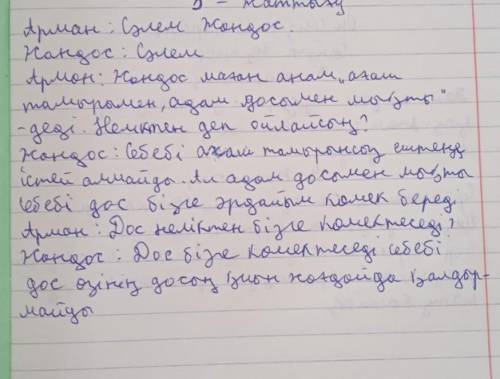 5 - жаттығу
Арман : Сәлем Жандос.
Жандос : Сәлем
Арман : Жандос маған анам „ағаш
тамырымен, адам досымен мықты"
- деді. Неліктен деп ойлайсың?
Жандос : Себебі ағаш тамырынсыз ештеңе
істей алмайды. Ал адам досымен мықты
себебі дос бізге әрдайым көмек береді
Арман : Дос неліктен бізге көмектеседі?
Жандос : Дос бізге көмектеседі себебі
дос өзінің досың қиын жағдайда қалдыр-
майды